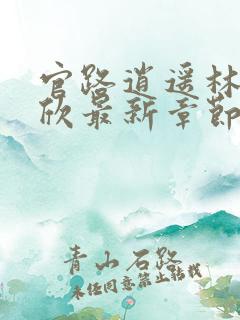 官路逍遥林
欣最新章節
青山石路
未经同意禁止转载